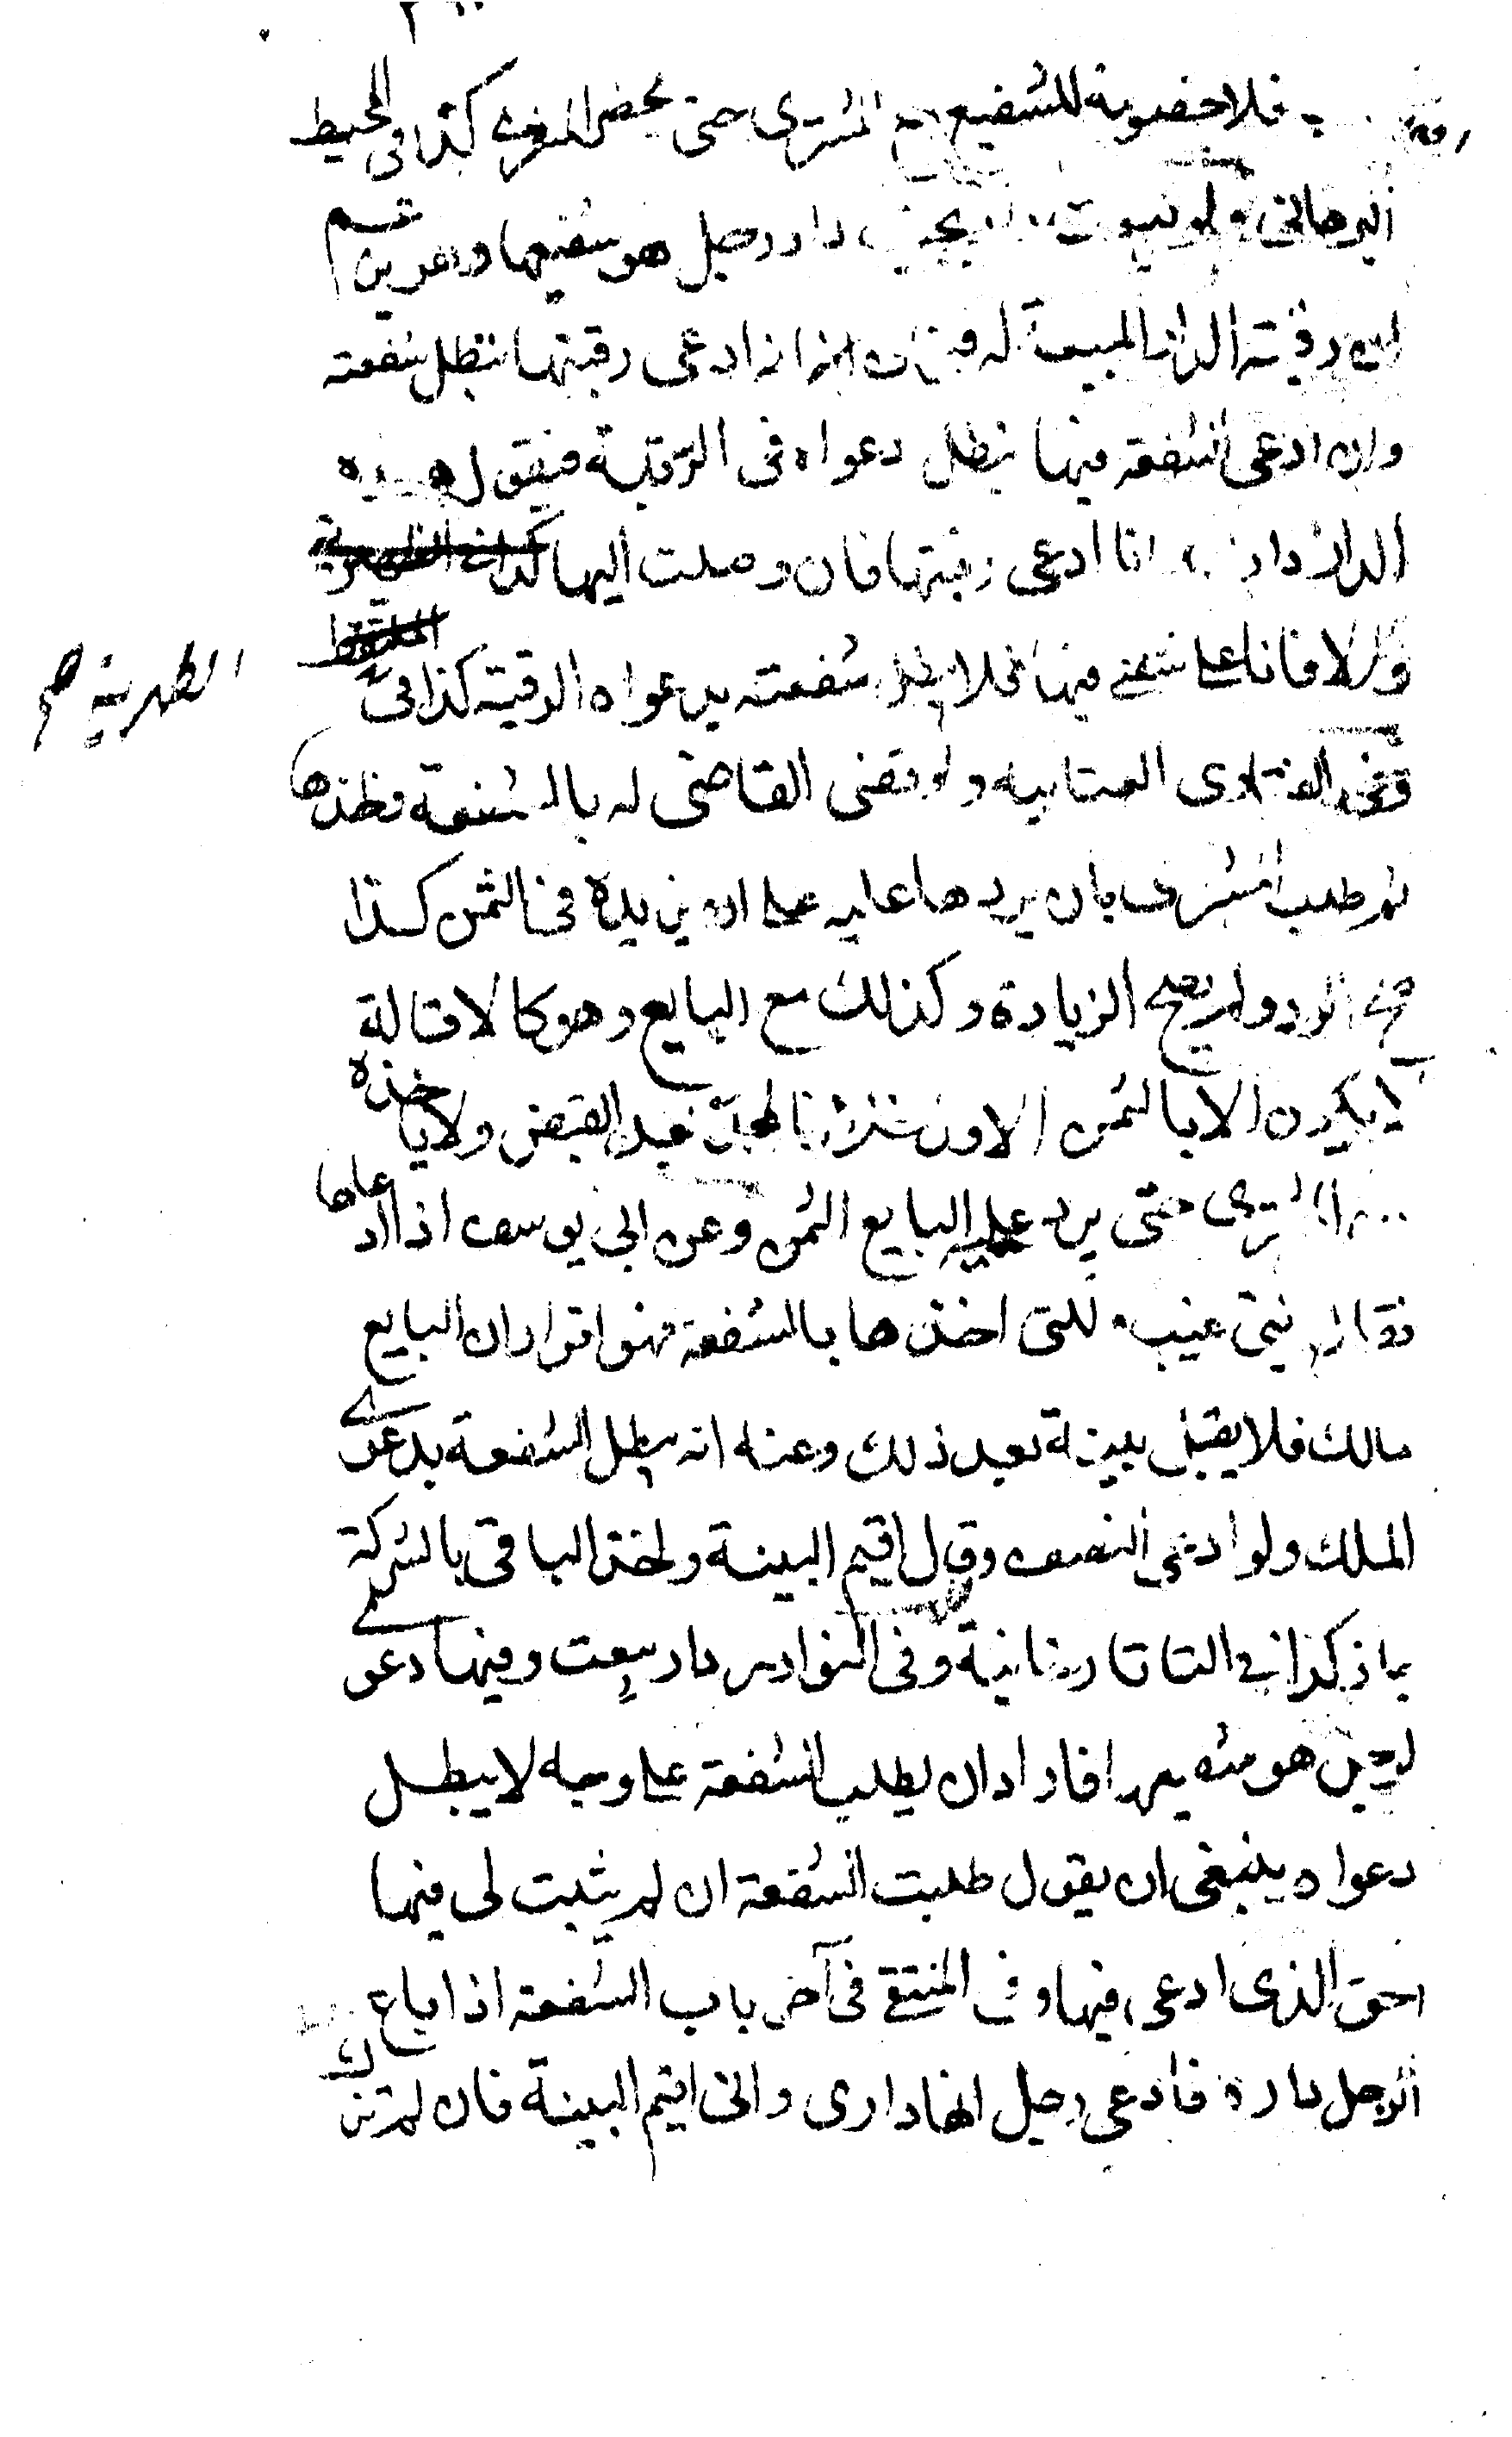 فلا خصومة للشفيع مع المشترى حتى يحضر المقر كذا فى المحيط
البرهانى ولو بيعت دار بجنب دار رجل هو شفيعها وهو يزعم
ان رقبة الدار المبيعة له ادعى رقبتها تبطل شفعته
وان ادعى الشفعة فيها تبطل دعواه فى الرقبة فيقول هذه
الدار دارى انا ادعى رقبتها فان وصلت اليها
والا فانا على شفعتى فيها فلا تبطل شفعته بدعواه الرقبة كذا فى
الظهيرية صح
وفى الفتاوى العتابية ولو قضى القاضى له بالشفعة فاخذها
ثم طلب المشترى بان يردها عليه على ان يزيده فى الثمن كذا
صح الرد ولم يصح الزيادة وكذلك مع البايع وهو كالاقالة
لا يكون الا بالثمن الاول بعد القبض ولا ياخذه
المشترى حتى يرد عليه البايع الثمن وعن ابى يوسف اذا ادعاها
فقال بينتى غيب للتى اخذها بالشفعة فهو اقرار ان البايع
مالك فلا يقبل بينة بعد ذلك وعنه انه يبطل الشفعة بدعوى
الملك ولو ادعى النصف وقال اقيم البينة واخذ الباقى بالشركة
جاز كذا فى التاتارخانية وفى النوادر دار بيعت وفيها دعوى
لرجل هو شفيعها فاراد ان يطلب الشفعة على وجه لا يبطل
دعواه ينبغى ان يقول طلبت الشفعة ان لم يثبت لى فيها
الحق الذى ادعى فيها وفى المنتقى فى آخر باب الشفعة اذا باع
الرجل داره فادعى رجل انها دارى وانى اقيم البينة فان لم تزك